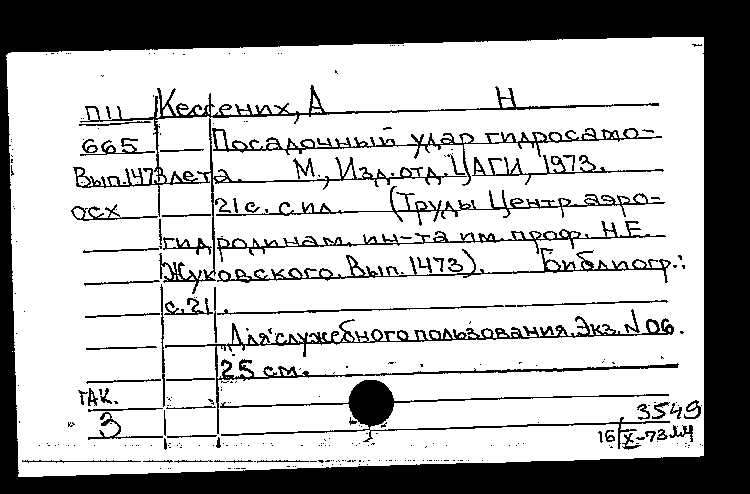 П11 Кессених, А Н
665 Посадочный удар гидросамо-
Вып.1473 лета. М., Изд. отд. ЦАГИ, 1973.
осх 21 с. с ил. (Труды Центр. аэро-
гидродинам. ин-та им. проф. Н.Е.
Жуковского. Вып. 1473). Библиогр.:
с. 21.
"Для служебного пользования. Экз. N 06.
25 см.
ГАК.
3 3549
16/X-73